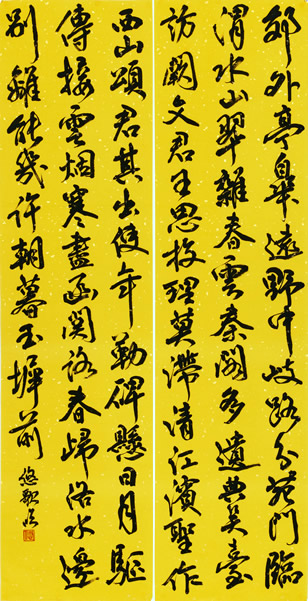 郊外亭皋遠野中歧路分苑門臨
渭水山翠雜春雲秦閣多遺典吳臺
訪闕文君王思校理莫滯清江濱聖作
西山頌君其出使年勒碑懸日月驅
傳接雲烟寒盡函關路春歸洛水邊
別離能幾許朝暮玉墀前